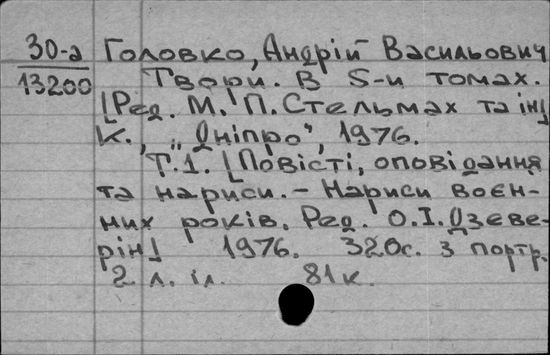 30-а Головко, Андрій Васильович
13200 Твори. В 5-и томах.
[Ред. М. П. Стельмах та ін]
К., „Дніпро", 1976.
Т.1. [Повісті, оповідання
та нариси. - Нариси воєн-
них років. Ред. О.І. Дзеве-
рін] 1976. 320с. з портр.
2 л. іл. 81 к.